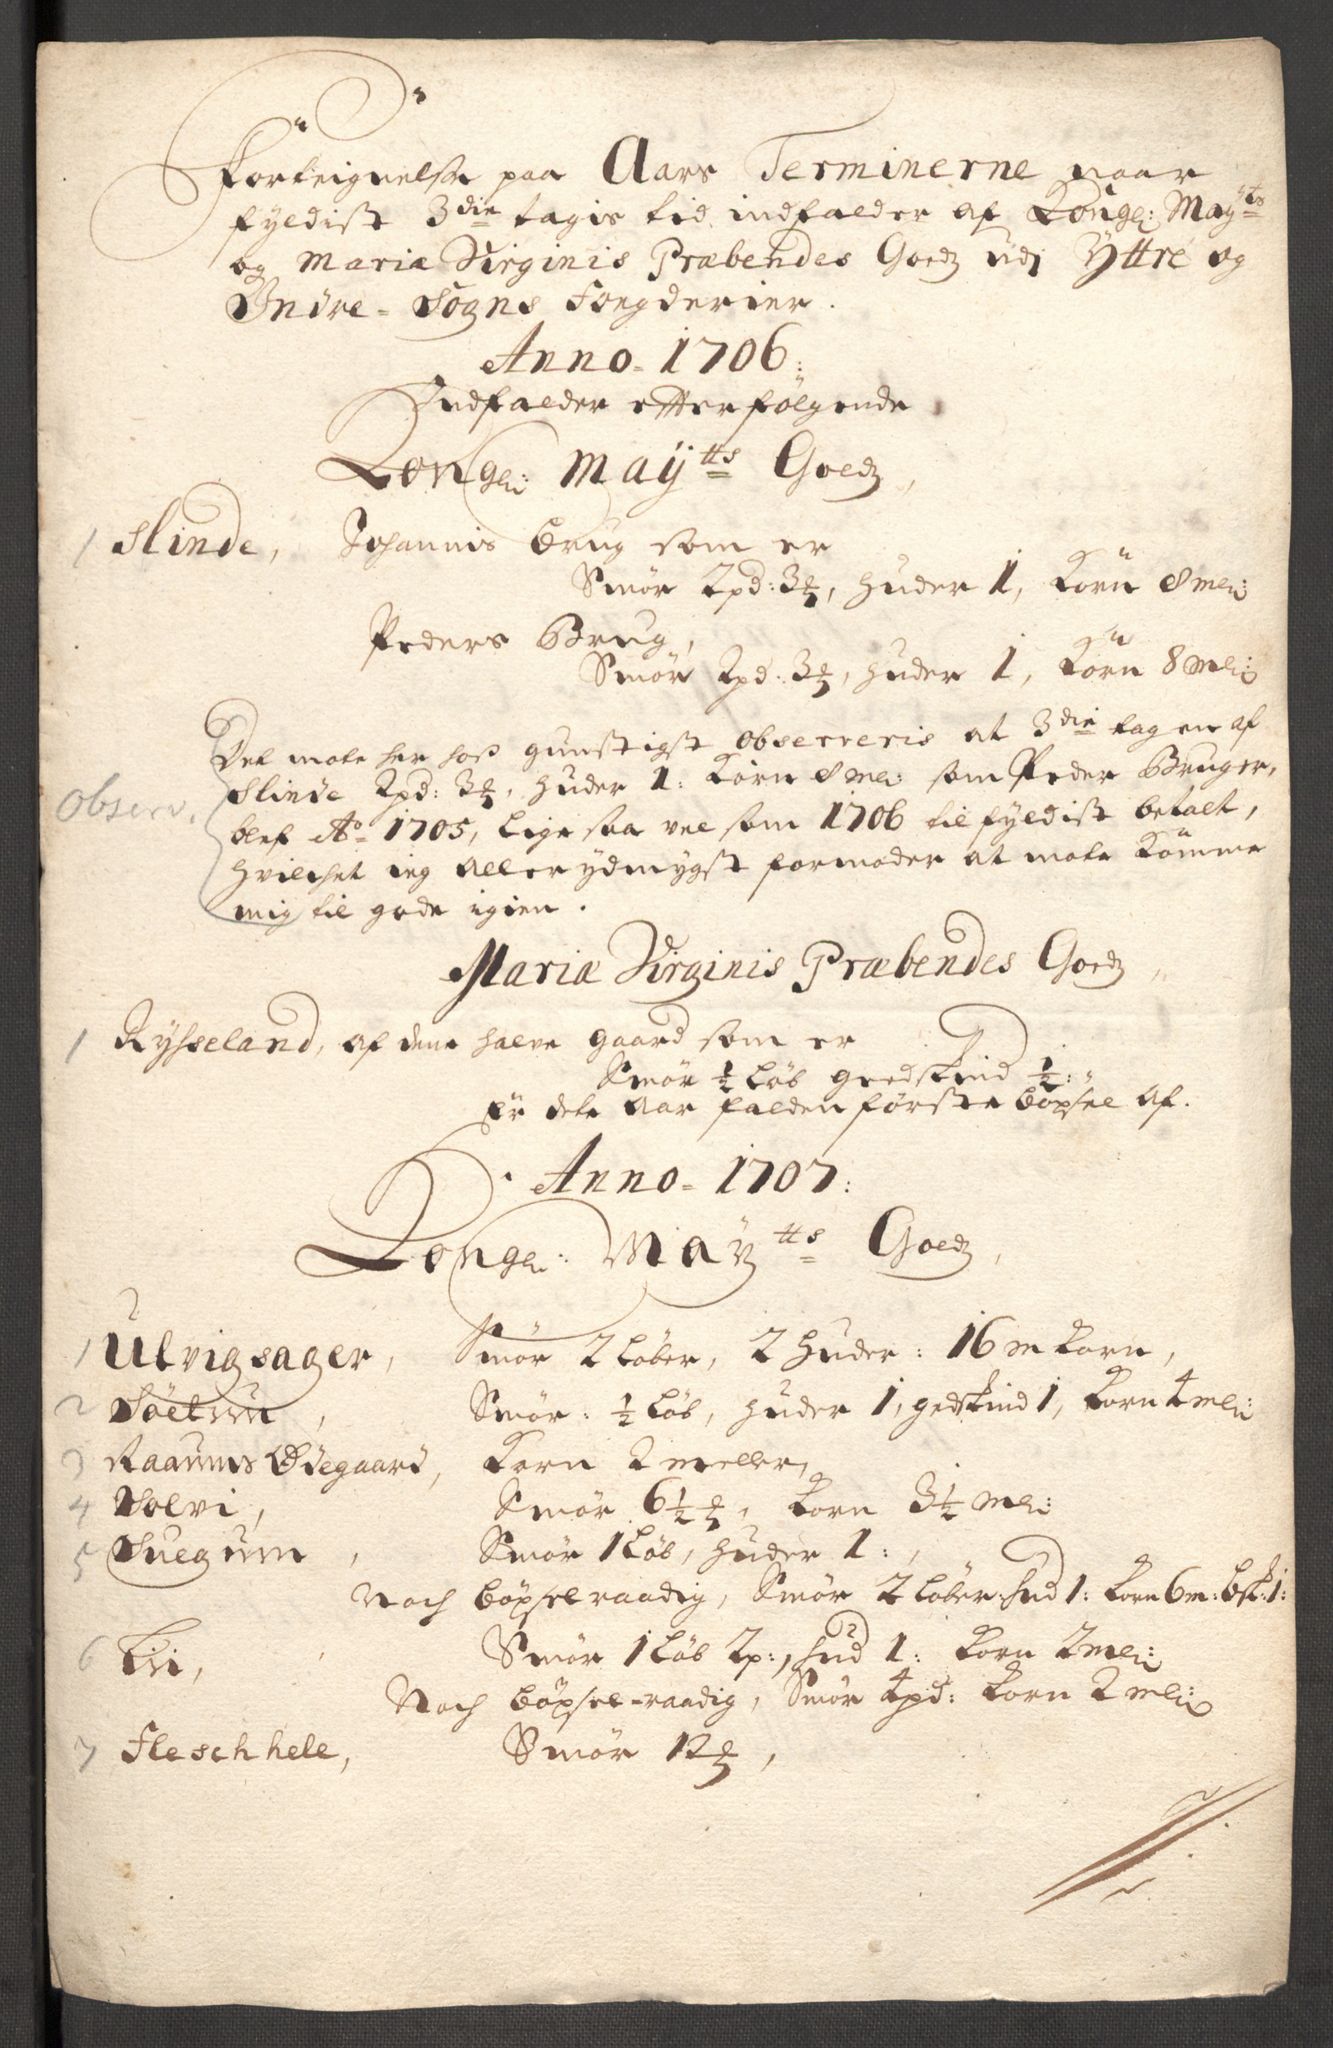 Forteignelse paa Aars Terminerne naar
fyldist 3die tagis tid indfalder af Kongl: Mayts
og Mariæ Virginis Præbendes Goedz udj Yttre og
Indre-Sogns Foegderier.
Anno-1706:
Indfalder efterfølgende
Kongl: Maytts Goedz,
1 Slinde, Johannis brug som er
Smör 2pd: 3 ℔, huder 1, Korn 8 mel:
Peders Brug,
Smör 2pd: 3 ℔, huder 1, Korn 8 mel:
Det mote her hoß gunstigst observeris at 3die tagen af
Observ. Slinde 2pd: 3 ℔, huder 1: Korn 8 mel: som Peder Bruger,
blef Ao 1705, lige saa vel som 1706 til fyldist betalt,
hvilchet ieg allerydmygst formoder at mote komme
mig til gode igien.
Mariæ Virginis Præbendes Goedz,
1 Rysseland, af dene halve gaard som er
Smör ½ Löb gedskind ½:
Er dete Aar falden förste böxsel af.
Anno-1707:
Kongl: Maytts Goedz,
1 Ulvigsager, Smör 2 Löber, 2 huder: 16 m Korn,
2 Söetun, Smör: ½ Löb, huder 1, gedskind 1, Korn 4 mel:
3 Raaums Ødegaard, Korn 2 meller,
4 Solvi, Smör 6½ ℔, Korn 3½ mel:
5 Suegum, Smör 1 Löb, huder 1:,
Noch böxsel raadig, Smör 2 Löber: hud 1: Korn 6 m: bsk: 1:
6 Kvi, Smör 1 Löb 2p:, hud 1: Korn 2 mel:
Noch böxsel-raadig, Smör 4pd: Korn 2 mel:
7 Fleschhele, Smör 12 ℔,